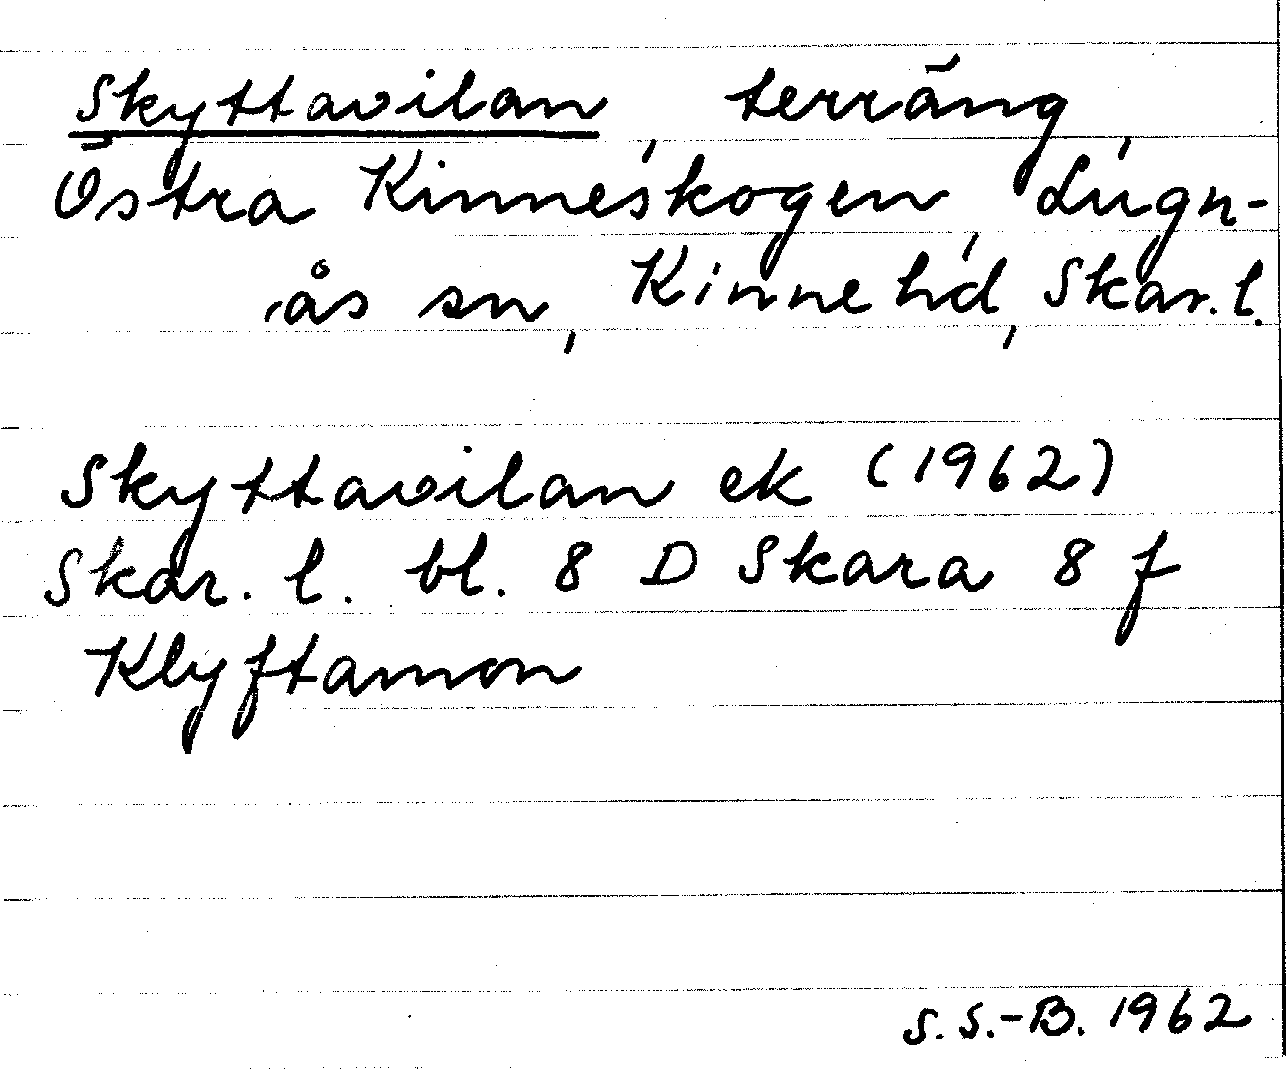 Skyttavilan, terräng,
Östra Kinneskogen, Lugn-
ås sn, Kinne hd, Skar. l.
Skyttavilan ek (1962)
Skar. l. bl. 8 D Skara 8 f
Klyftamon
S. S.-B. 1962